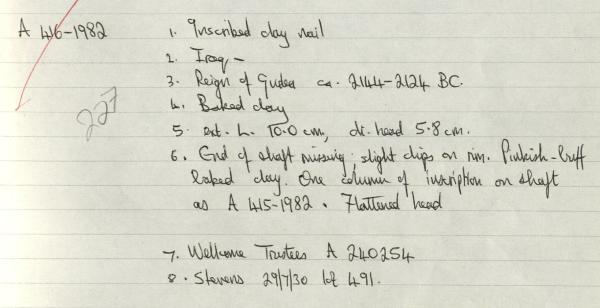 A 416-1982
1. Inscribed clay nail
2. Iraq -
3. Reign of Gudea ca. 2144-2124 BC.
4. Baked clay
227
5. ext. L. 10.0 cm, di. head 5.8 cm.
6. End of shaft missing; slight chips on rim. Pinkish-buff
baked clay. One column of inscription on shaft
as A 415-1982. Flattened head
7. Wellcome Trustees A 240254
8. Stevens 29/7/30 lot 491.